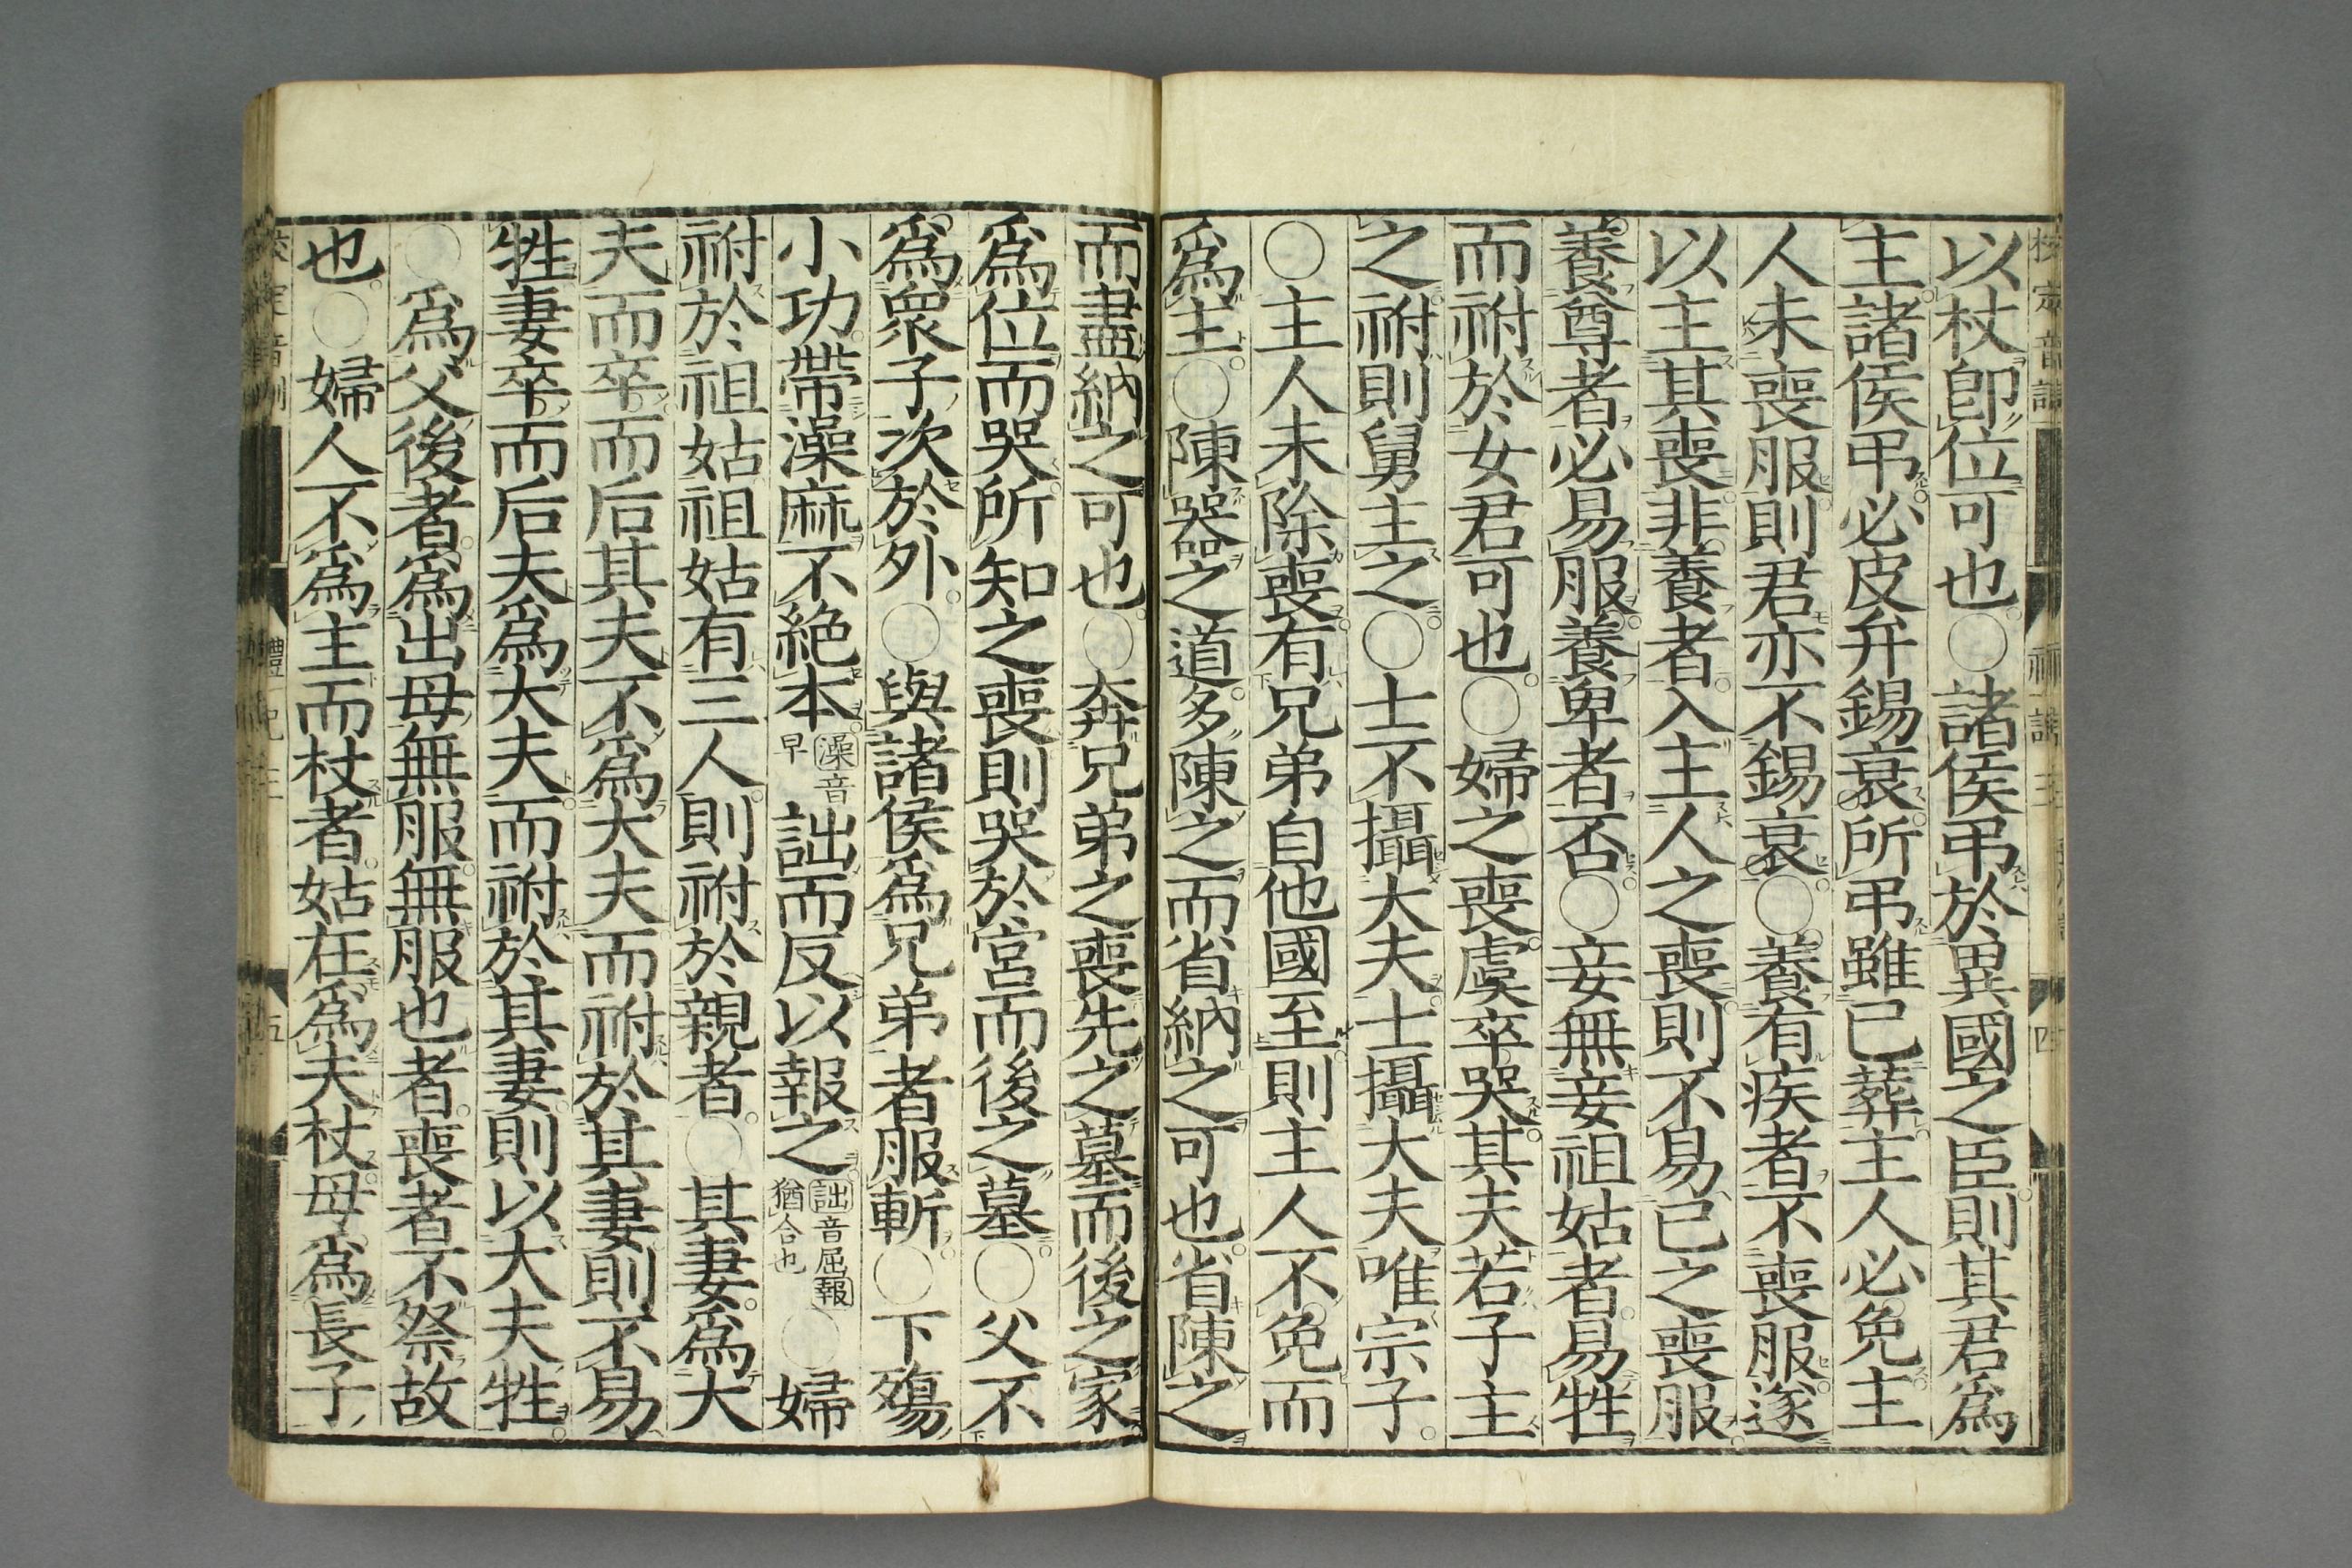 以杖卽位可也○諸侯弔於異國之臣則其君爲
主諸侯弔必皮弁錫衰所弔雖已葬主人必免主
人未喪服則君亦不錫衰○養有疾者不喪服遂
以主其喪非養者入主人之喪則不易己之喪服
養尊者必易服養卑者否○妾無妾祖姑者易牲
而祔於女君可也○婦之喪虞卒哭其夫若子主
之祔則舅主之○士不攝大夫士攝大夫唯宗子
○主人未除喪有兄弟自他國至則主人不免而
爲主○陳器之道多陳之而省納之可也省陳之
而盡納之可也○奔兄弟之喪先之墓而後之家
爲位而哭所知之喪則哭於宮而後之墓○父不
爲衆子次於外○與諸侯爲兄弟者服斬○下殤
小功帶澡麻不絕本澡音早詘而反以報之詘音屈報猶合也○婦
祔於祖姑祖姑有三人則祔於親者○其妻爲大
夫而卒而后其夫不爲大夫而祔於其妻則不易
牲妻卒而后夫爲大夫而祔於其妻則以大夫牲
○爲父後者爲出母無服無服也者喪者不祭故
也○婦人不爲主而杖者姑在爲夫杖母爲長子